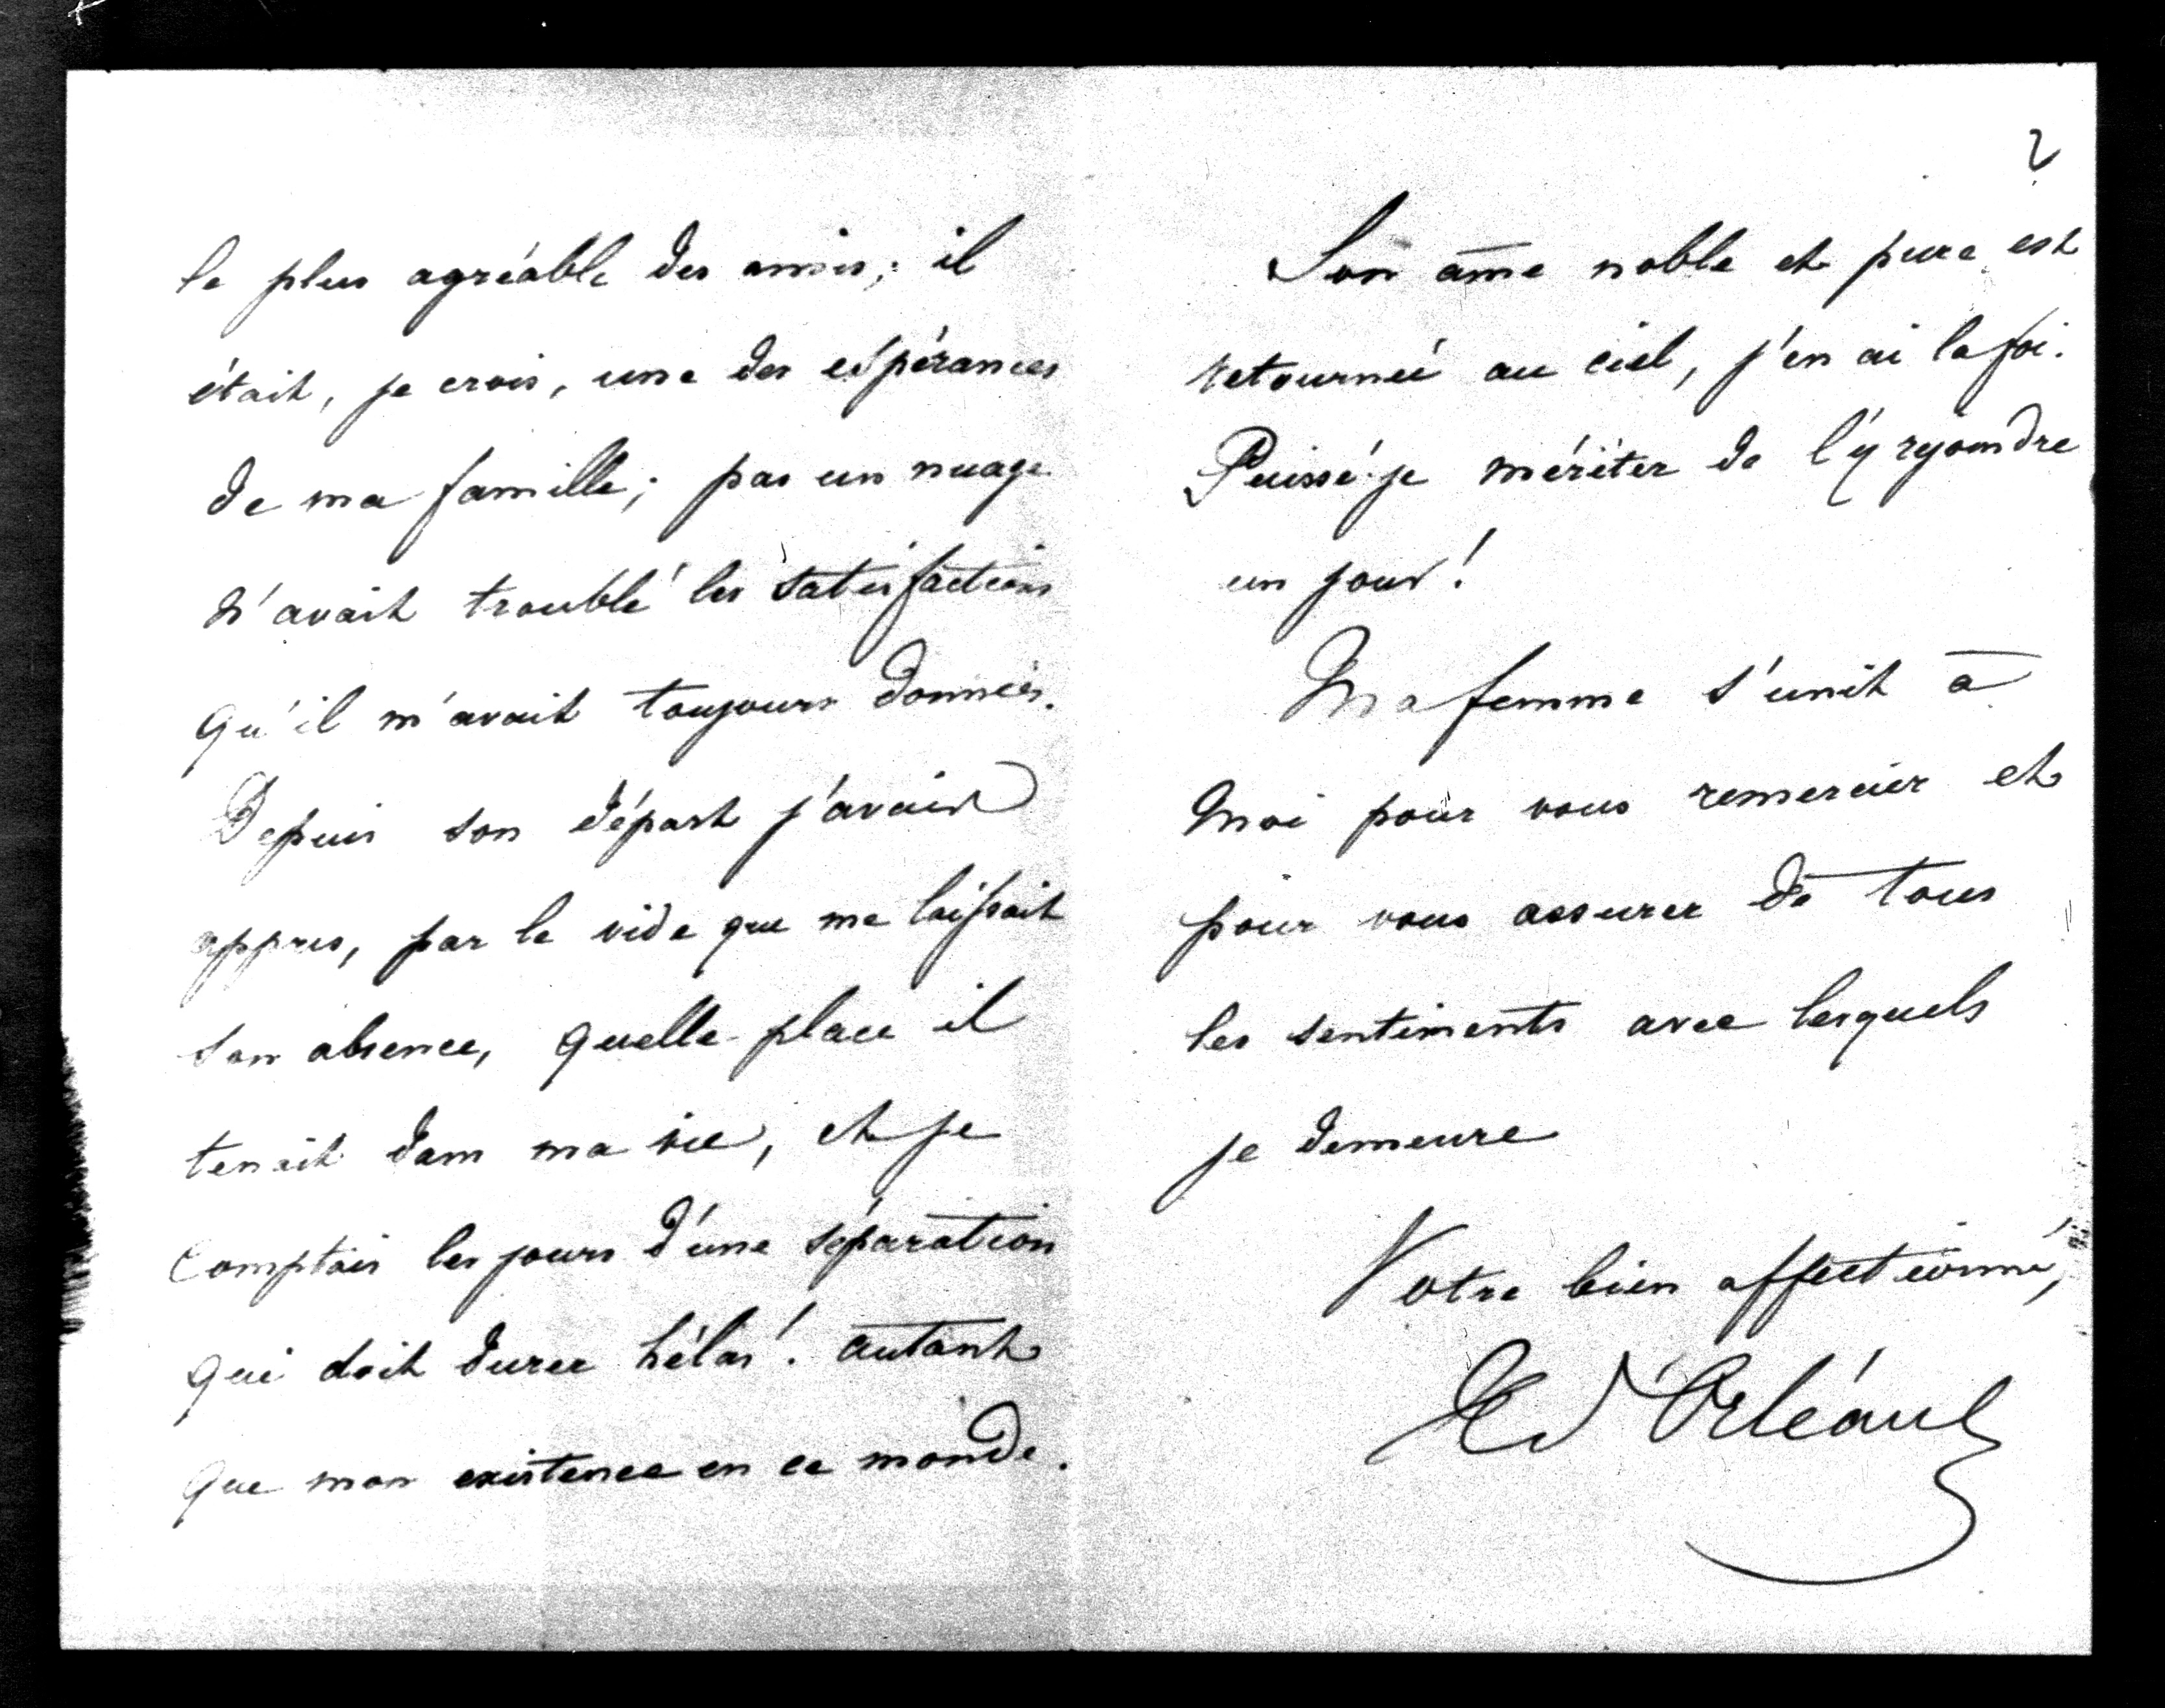 le plus agréable des amis; il
était, je crois, une des espérances
de ma famille; pas un nuage
n'avait troublé les satisfactions
qu'il m'avait toujours données.
Depuis son départ j'avais
appris, par le vide que me laissait
son absence, quelle place il
tenait dans ma vie, et je
comptais les jours d'une séparation
qui doit durer hélas! autant
que mon existence en ce monde.
2
Son âme noble et pure est
retournée au ciel, j'en ai la foi.
Puissé-je mériter de l'y rejoindre
un jour!
Ma femme s'unit à
moi pour vous remercier et
pour vous assurer de tous
les sentiments avec lesquels
je demeure
Votre bien affectionné,
d'Orléans